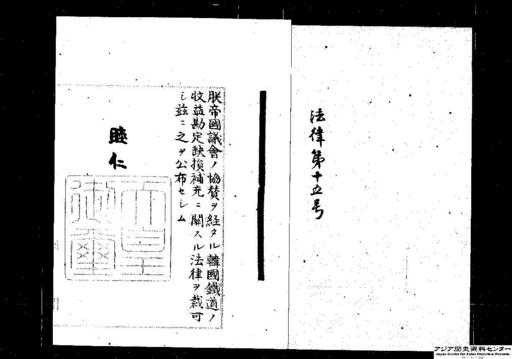 法律第十五号
朕帝國議會ノ協賛ヲ経タル韓國鐵道ノ
收益勘定缺損補充ニ關スル法律ヲ裁可
シ茲ニ之ヲ公布セシム
睦仁
天皇
御璽
アジア歴史資料センター
Japan Center for Asian Historical Records